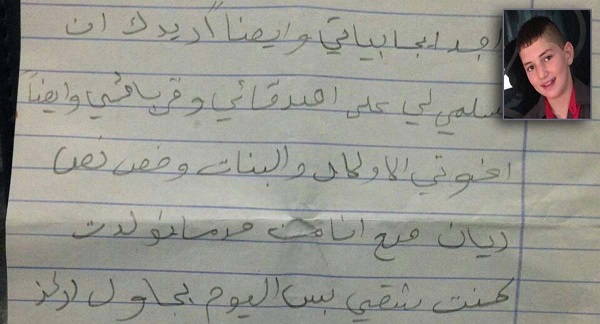 اجد ايجابياتي وايضاً اريدك ان
تسلمي لي على اصدقائي و قرباتي وايضاً
اخوتي الاولاد والبنات وخص نص
ريان مع انا من يوم ماتولدت
كنت شقي بس اليوم بحاول